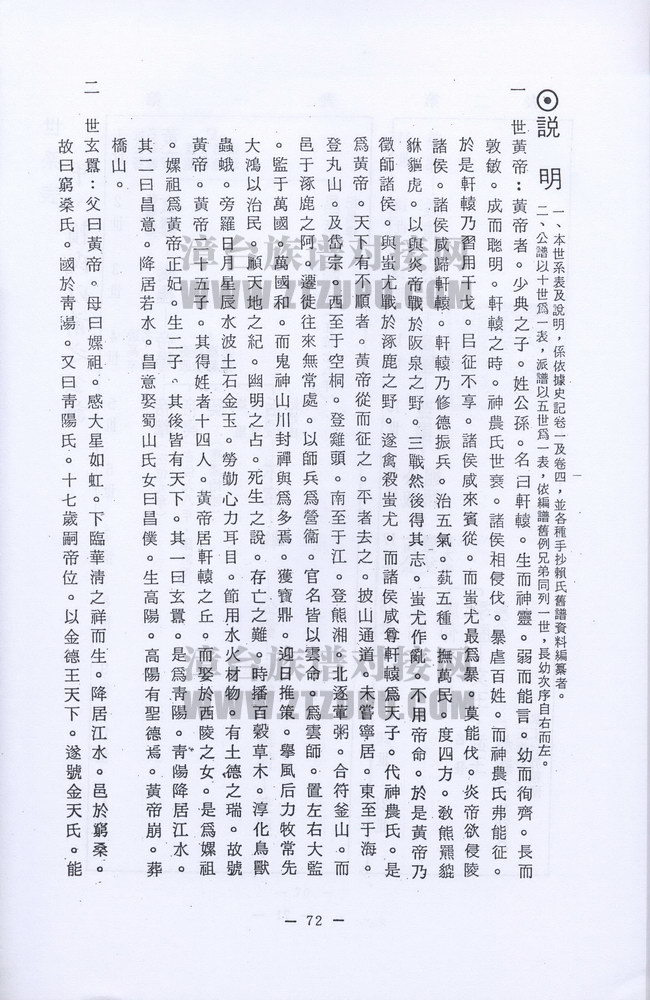 ⊙説　明
一、本世系表及說明，係依據史記卷一及卷四，並各種手抄賴氏舊譜資料編纂者。
二、公譜以十世爲一表，派譜以五世爲一表，依編譜舊例兄弟同列一世，長幼次序自右而左。
一　世黃帝：黃帝者。少典之子。姓公孫。名曰軒轅。生而神靈。弱而能言。幼而徇齊。長而
敦敏。成而聰明。軒轅之時。神農氏世衰。諸侯相侵伐。暴虐百姓。而神農氏弗能征。
於是軒轅乃習用干戈。㠯征不享。諸侯咸來賓從。而蚩尤最爲暴。莫能伐。炎帝欲侵陵
諸侯。諸侯咸歸軒轅。軒轅乃修德振兵。治五氣。蓺五種。撫萬民。度四方。敎熊羆貔
貅貙虎。以與炎帝戰於阪泉之野。三戰然後得其志。蚩尤作亂。不用帝命。於是黃帝乃
徵師諸侯。與蚩尤戰於涿鹿之野。遂禽殺蚩尤。而諸侯咸尊軒轅爲天子。代神農氏。是
爲黃帝。天下有不順者。黃帝從而征之。平者去之。披山通道。未嘗寧居。東至于海。
登丸山。及岱宗。西至于空桐。登雞頭。南至于江。登熊湘。北逐葷粥。合符釜山。而
邑于涿鹿之阿。遷徙往來無常處。以師兵爲營衞。官名皆以雲命。爲雲師。置左右大監
。監于萬國。萬國和。而鬼神山川封禪與爲多焉。獲寶鼎。迎日推策。舉風后力牧常先
大鴻以治民。順天地之紀。幽明之占。死生之說。存亡之難。時播百穀草木。淳化鳥獸
蟲蛾。旁羅日月星辰水波土石金玉。勞勤心力耳目。節用水火材物。有土德之瑞。故號
黃帝。黃帝二十五子。其得姓者十四人。黃帝居軒轅之丘。而娶於西陵之女。是爲嫘祖
。嫘祖爲黃帝正妃。生二子。其後皆有天下。其一曰玄囂。是爲靑陽。靑陽降居江水。
其二曰昌意。降居若水。昌意娶蜀山氏女曰昌僕。生高陽。高陽有聖德焉。黃帝崩。葬
橋山。
二　世玄囂：父曰黃帝。母曰嫘祖。感大星如虹。下臨華渚之祥而生。降居江水。邑於窮桑。
故曰窮桑氏。國於靑陽。又曰靑陽氏。十七歲嗣帝位。以金德王天下。遂號金天氏。能
— 72 —
漳台族谱对接网
WWW.ZTZUPU.COM
漳台族谱对接网
WWW.ZTZUPU.COM